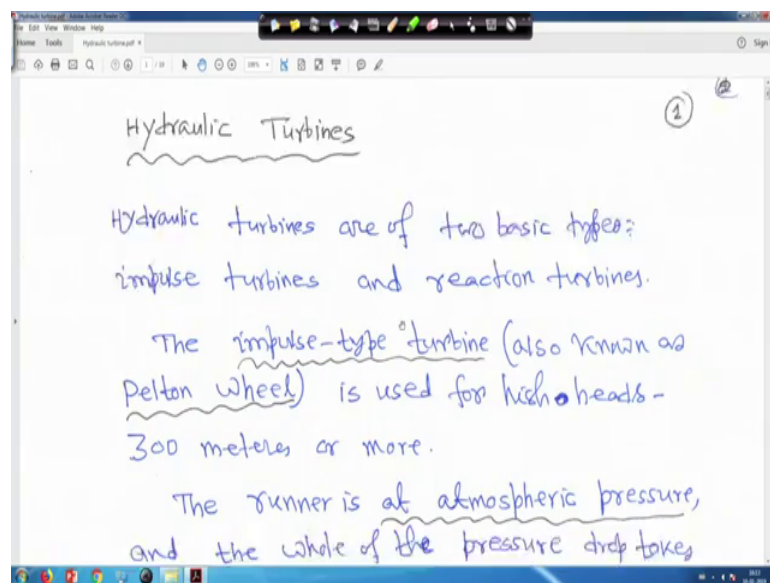 Hydraulic turbine.pdf - Adobe Acrobat Reader DC
File Edit View Window Help
Home Tools Hydraulic turbine.pdf ×
Sign
1
Hydraulic Turbines
Hydraulic turbines are of two basic types:
impulse turbines and reaction turbines.
The impulse-type turbine (also known as
Pelton wheel) is used for high heads-
300 meters or more.
The runner is at atmospheric pressure,
and the whole of the pressure drop takes